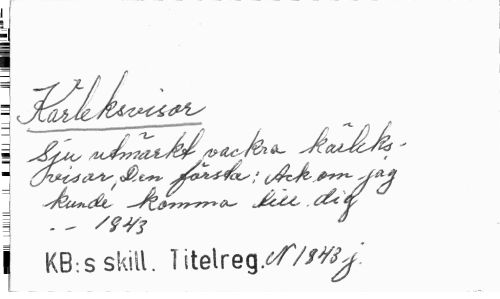 Kärleksvisor
Sju utmärkt vackra kärleks-
visor, Den första: Ack om jag
kunde komma till dig
-- 1843
KB:s skill. Titelreg. N 1843 j.